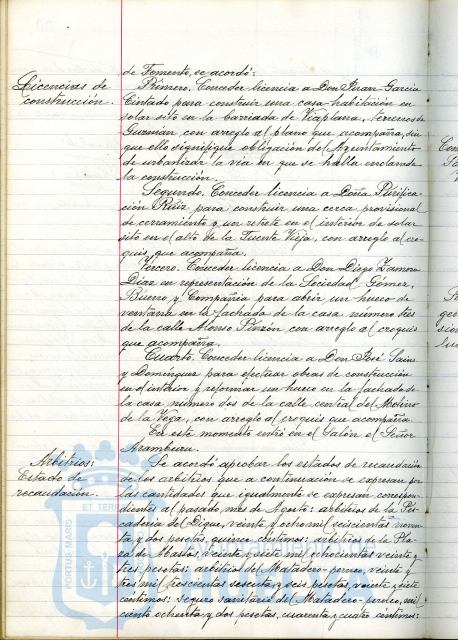 de Fomento, se acordó:
Licencias de
construcción.
Primero. Conceder licencia a Don Juan García
Cintado para construir una casa habitación en
solar sito en la barriada de Viaplana, terrenos de
Guzmán, con arreglo al plano que acompaña, sin
que ello signifique obligación del Ayuntamiento
de urbanizar la vía en que se halla enclavada
la construcción.
Segundo. Conceder licencia a Doña Purifica-
ción Ruiz para construir una cerca provisional
de cerramiento y un retrete en el interior de solar
sito en el alto de la Fuente Vieja, con arreglo al cro-
quis que acompaña.
Tercero. Conceder licencia a Don Diego Zamora
Díaz en representación de la Sociedad Gómez,
Bueno y Compañía para abrir un hueco de
ventana en la fachada de la casa número tres
de la calle Alonso Pinzón, con arreglo al croquis
que acompaña.
Cuarto. Conceder licencia a Don José Sainz
y Domínguez para efectuar obras de construcción
en el interior y reformar un hueco en la fachada de
la casa número dos de la calle central del Molino
de la Vega, con arreglo al croquis que acompaña.
En este momento entró en el Salón el Señor
Aramburu.
Arbitrios:
Estado de
recaudación.
Se acordó aprobar los estados de recaudación
de los arbitrios que a continuación se expresan por
las cantidades que igualmente se expresan correspon-
dientes al pasado mes de Agosto: arbitrios de la Pes-
cadería del Dique, veinte y ocho mil seiscientas noven-
ta y dos pesetas, quince céntimos; arbitrios de la Pla-
za de Abastos, veinte y siete mil ochocientas veinte y
tres pesetas; arbitrios del Matadero-porneo, veinte y
tres mil trescientas sesenta y seis pesetas, veinte y siete
céntimos; seguro sanitario del Matadero-porneo, mil
ciento ochenta y dos pesetas, cuarenta y cuatro céntimos;
PORTUS MARIS
ET TERRAE